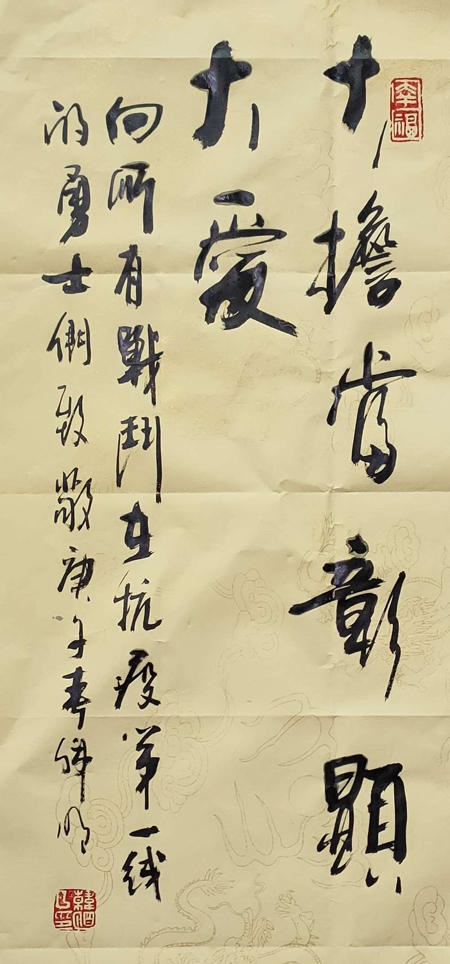 大擔當彰顯
大愛
向所有戰鬥在抗疫第一线
的勇士們致敬庚子春